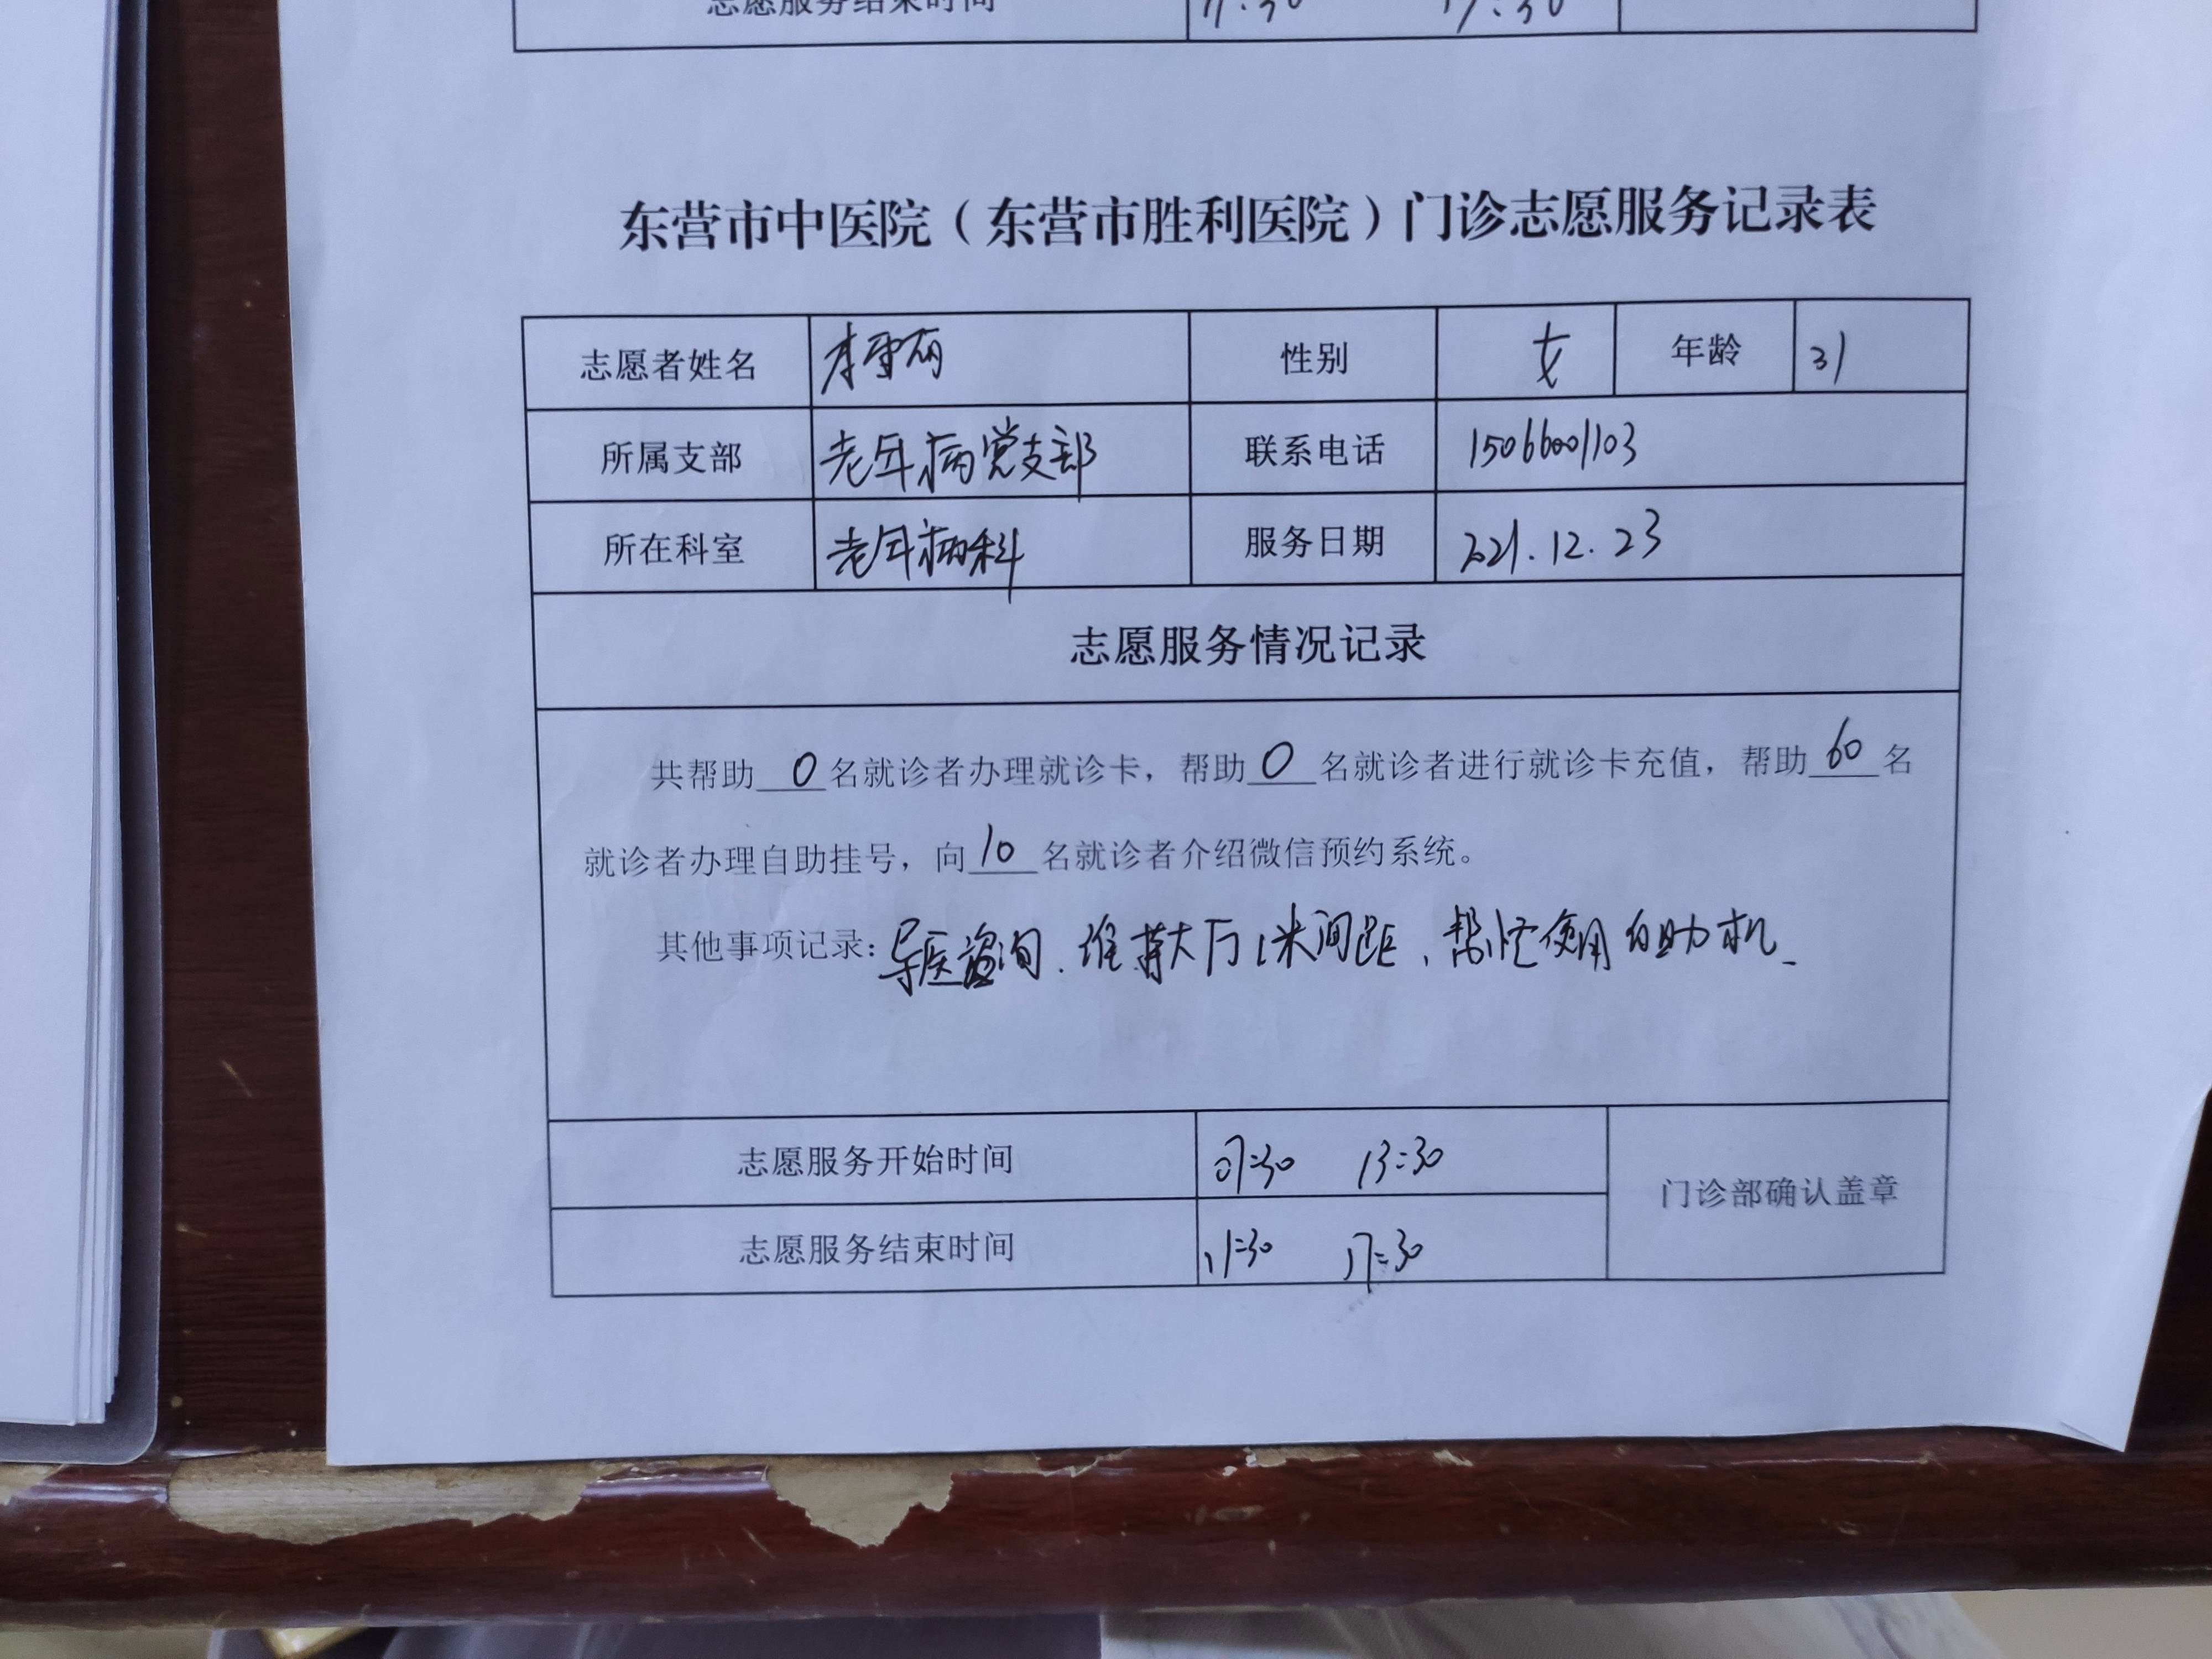 志愿服务结束时间 11:30 17:30
东营市中医院（东营市胜利医院）门诊志愿服务记录表
志愿者姓名 性别 女 年龄 31
所属支部 老年病党支部 联系电话 15066001103
所在科室 老年病科 服务日期 2021.12.23
志愿服务情况记录
共帮助 0 名就诊者办理就诊卡，帮助 0 名就诊者进行就诊卡充值，帮助 60 名
就诊者办理自助挂号，向 10 名就诊者介绍微信预约系统。
其他事项记录：导医咨询、维持大厅1米间距、帮忙使用自助机
志愿服务开始时间 07:30 13:30
门诊部确认盖章
志愿服务结束时间 11:30 17:30